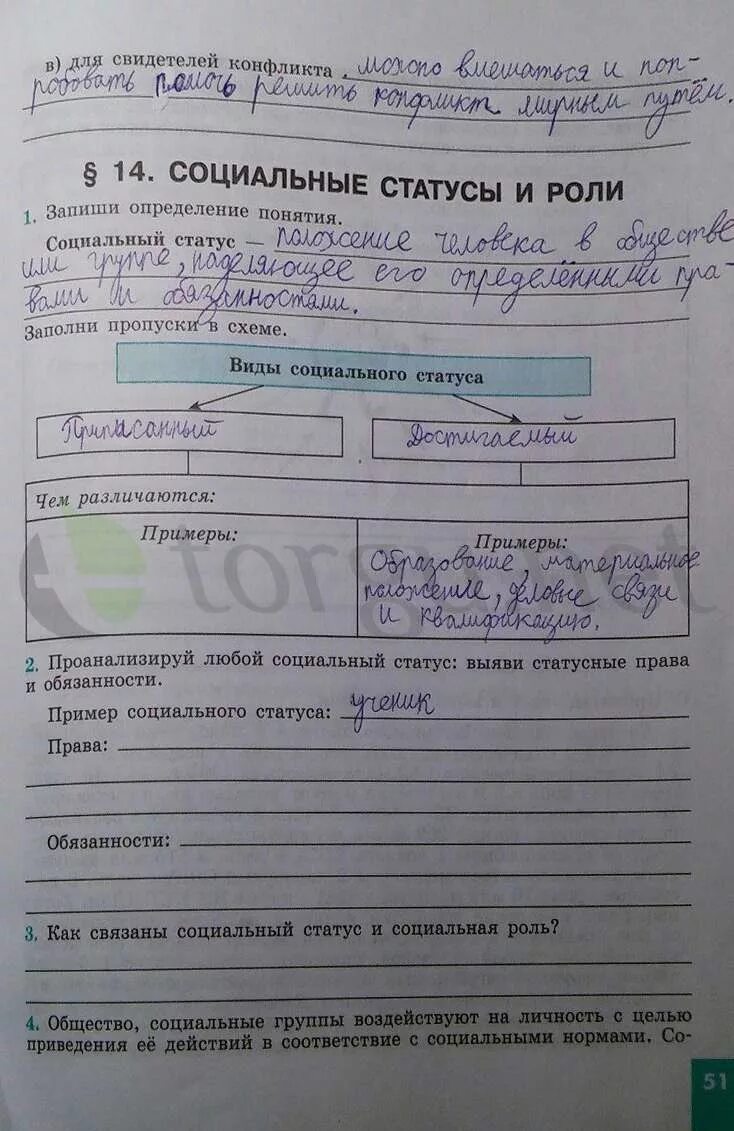 в) для свидетелей конфликта , можно вмешаться и поп-
робовать помочь решить конфликт мирным путём.
§ 14. СОЦИАЛЬНЫЕ СТАТУСЫ И РОЛИ
1. Запиши определение понятия.
Социальный статус — положение человека в обществе
или группе, наделяющее его определёнными пра-
вами и обязанностами.
Заполни пропуски в схеме.
Виды социального статуса
Приписанный
Достигаемый
Чем различаются:
Примеры:
Примеры:
Образование, материальное
положение, деловые связи
и квалификацию.
torga.net
2. Проанализируй любой социальный статус: выяви статусные права
и обязанности.
Пример социального статуса: ученик
Права:
Обязанности:
3. Как связаны социальный статус и социальная роль?
4. Общество, социальные группы воздействуют на личность с целью
приведения её действий в соответствие с социальными нормами. Со-
51